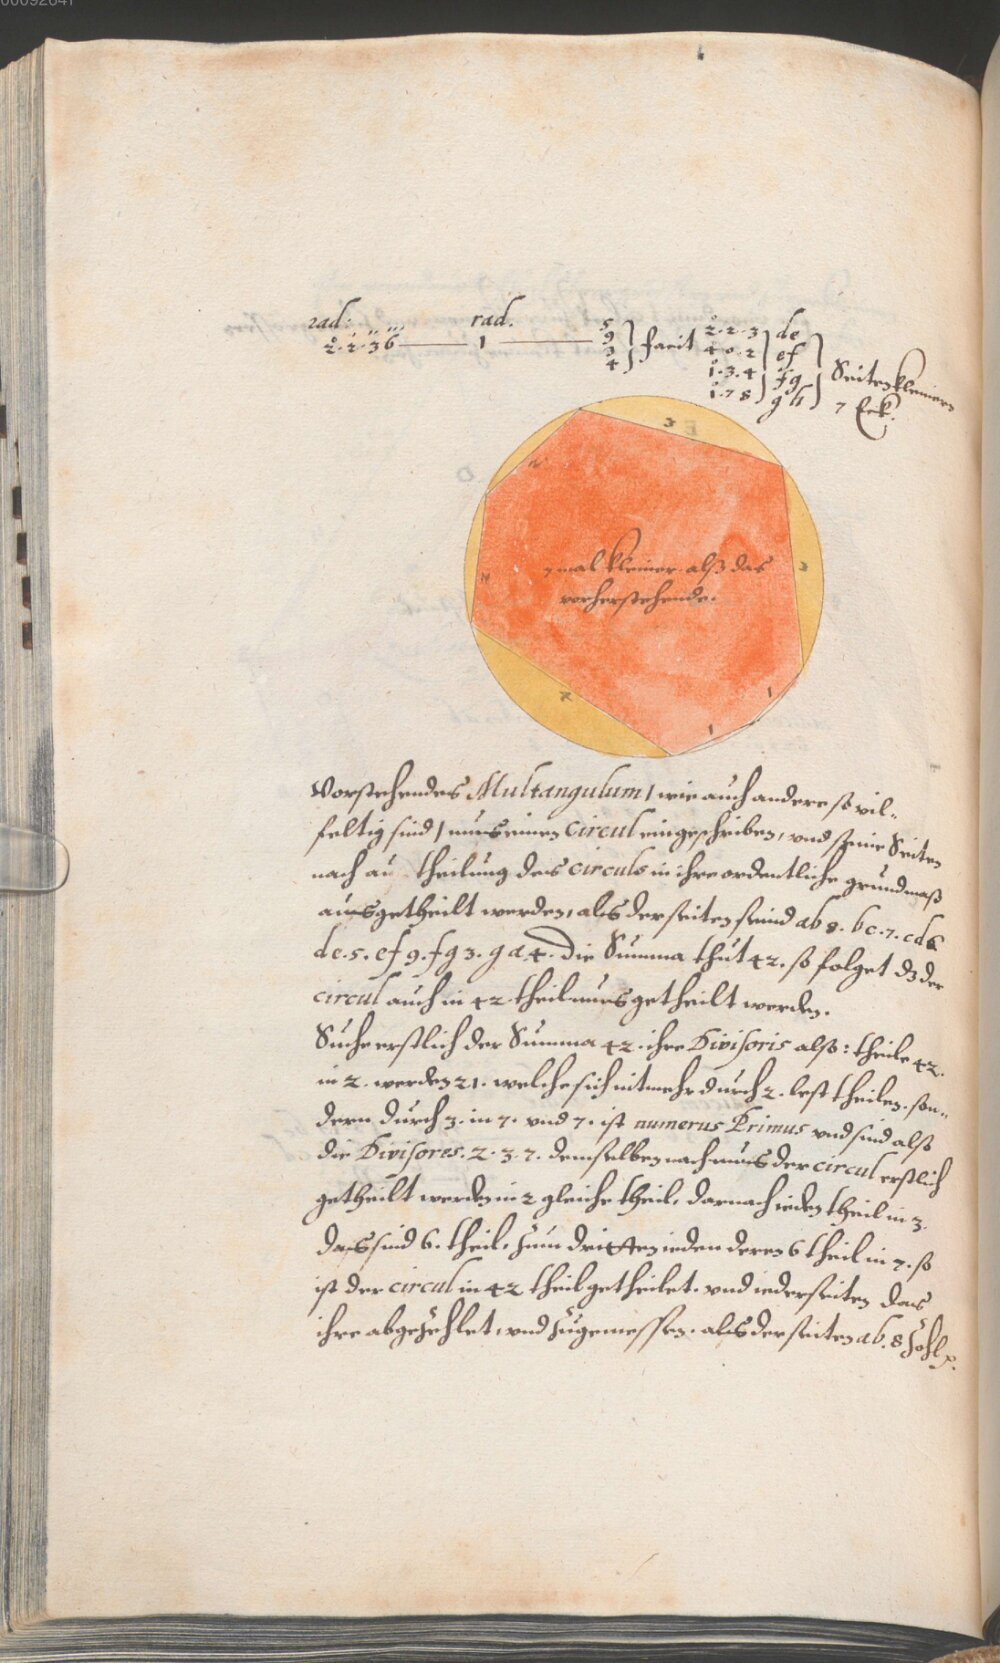 00092641
rad: rad. 5 2·2·3 de
2·2·3 6 — 1 — 9 facit 4 0·2 ef Seiten kleinern
3 1·3·4 fg 7 Eck.
4 1·7 8 gh
7 mal kleiner alß das
vorherstehende.
Vorstehendes Multangulum, wie auch andere so vil-
feltig sind, mus einen Circul eingeschriben, und seine Seiten
nach theilung des circuls in ihre ordentliche grundmaß
ausgetheilt werden, als der seiten seind ab 8. bc. 7. cd 6
de. 5. ef 9. fg 3. ga. 4. die Summa thut 42. so folget dz der
circul auch in 42 theil mus getheilt werden.
Suche erstlich der Summa 42. ihre Divisoris also: theile 42.
in 2. werden 21. welche sich nit mehr durch 2. lest theilen. son-
dern durch 3. in 7. und 7. ist numerus Primus und sind also
die Divisores. 2. 3. 7. demselben nach mus der circul erstlich
getheilt werden in 2 gleiche theil, darnach ieden theil in 3.
das sind 6. theil, zum dritten ieden deren 6 theil in 7. so
ist der circul in 42 theil getheilet. und ieder seiten das
ihre abgezehlet, und zugemessen. als der seiten ab. 8